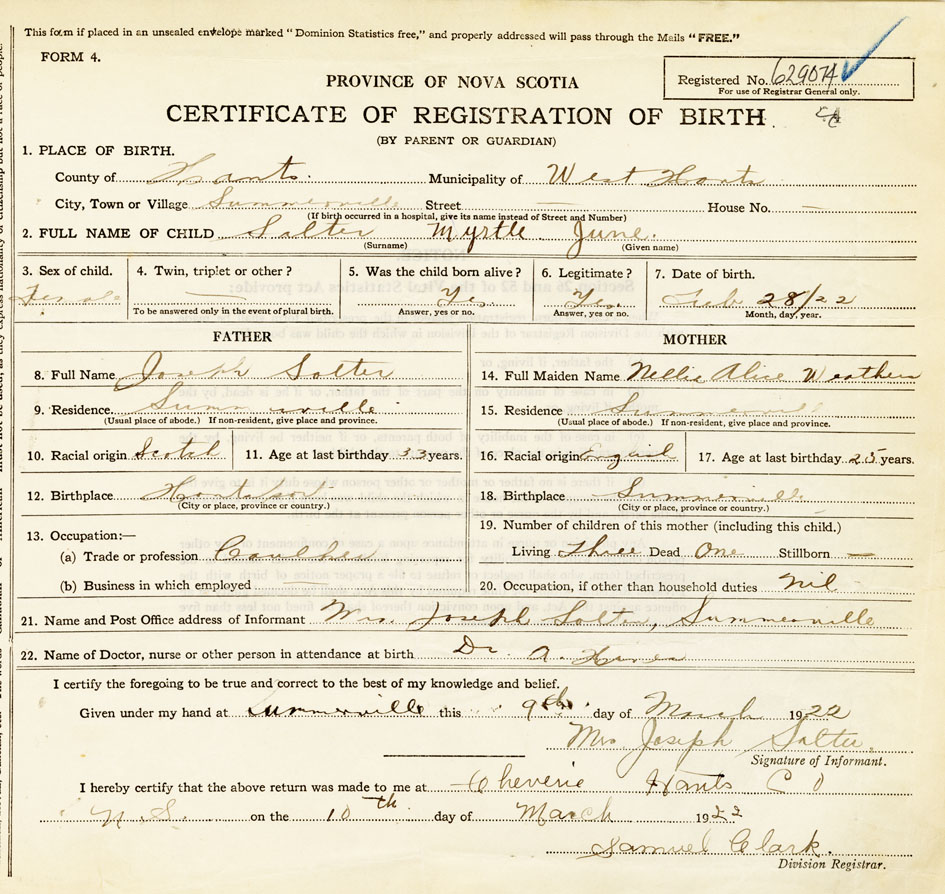 This form if placed in an unsealed envelope marked "Dominion Statistics free," and properly addressed will pass through the Mails "FREE."
FORM 4.
Registered No. 629074
For use of Registrar General only.
PROVINCE OF NOVA SCOTIA
CERTIFICATE OF REGISTRATION OF BIRTH
(BY PARENT OR GUARDIAN)
1. PLACE OF BIRTH.
County of Hants. Municipality of West Hants
City, Town or Village Summerville Street — House No. —
(If birth occurred in a hospital, give its name instead of Street and Number)
2. FULL NAME OF CHILD Salter Myrtle June.
(Surname) (Given name)
3. Sex of child. 4. Twin, triplet or other? 5. Was the child born alive? 6. Legitimate? 7. Date of birth.
Female — Yes. Yes. Feb 28/22
To be answered only in the event of plural birth. Answer, yes or no. Answer, yes or no. Month, day, year.
FATHER MOTHER
8. Full Name Joseph Salter 14. Full Maiden Name Nellie Alice Weathers
9. Residence Summerville 15. Residence Summerville
(Usual place of abode.) If non-resident, give place and province. (Usual place of abode.) If non-resident, give place and province.
10. Racial origin Scotch 11. Age at last birthday 33 years. 16. Racial origin English 17. Age at last birthday 25 years.
12. Birthplace 18. Birthplace Summerville
(City or place, province or country.) (City or place, province or country.)
13. Occupation:— 19. Number of children of this mother (including this child.)
(a) Trade or profession Living Three Dead One Stillborn —
(b) Business in which employed 20. Occupation, if other than household duties Nil
21. Name and Post Office address of Informant Mrs. Joseph Salter, Summerville
22. Name of Doctor, nurse or other person in attendance at birth Dr. A.
I certify the foregoing to be true and correct to the best of my knowledge and belief.
Given under my hand at Summerville this 9th. day of March 1922
Mrs Joseph Salter.
Signature of Informant.
I hereby certify that the above return was made to me at Cheverie Hants Co
N.S. on the 10th day of March 1922
Samuel Clark.
Division Registrar.